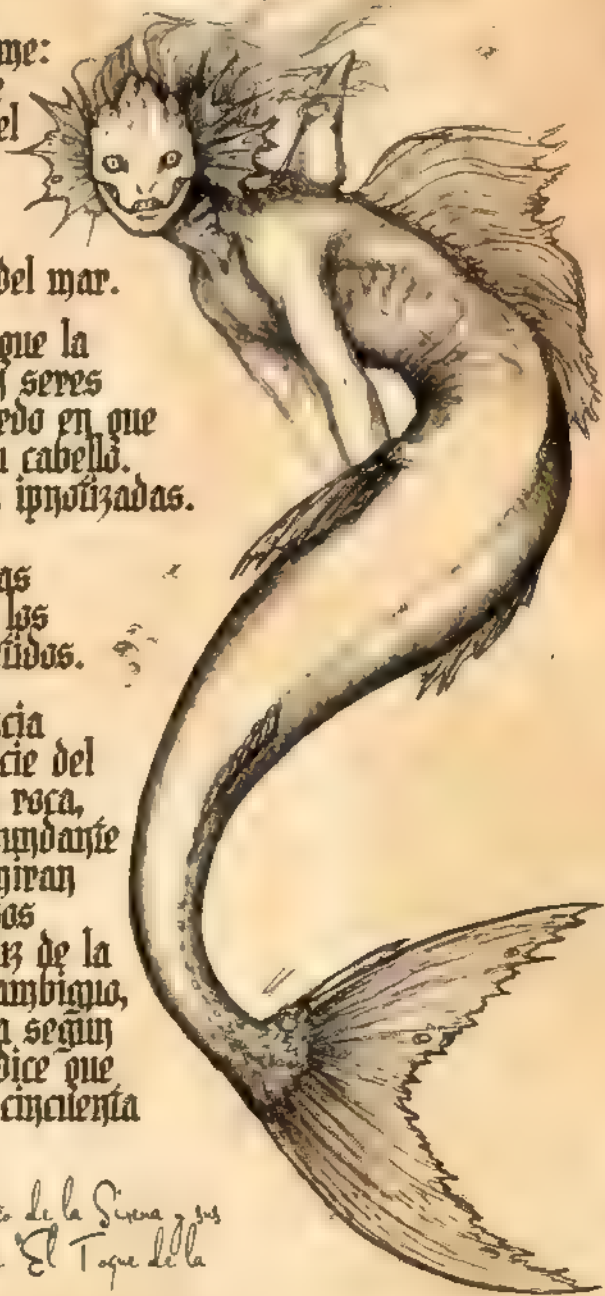 me:
el
del mar.
que la
seres
edo en que
u cabello.
ipnotizadas.
as
los
tidos.
cia
cie del
roca,
undante
miran
as
uz de la
ambiguo,
a segun
dice que
cincuenta
to de la Sirena y sus
"El Toque de la